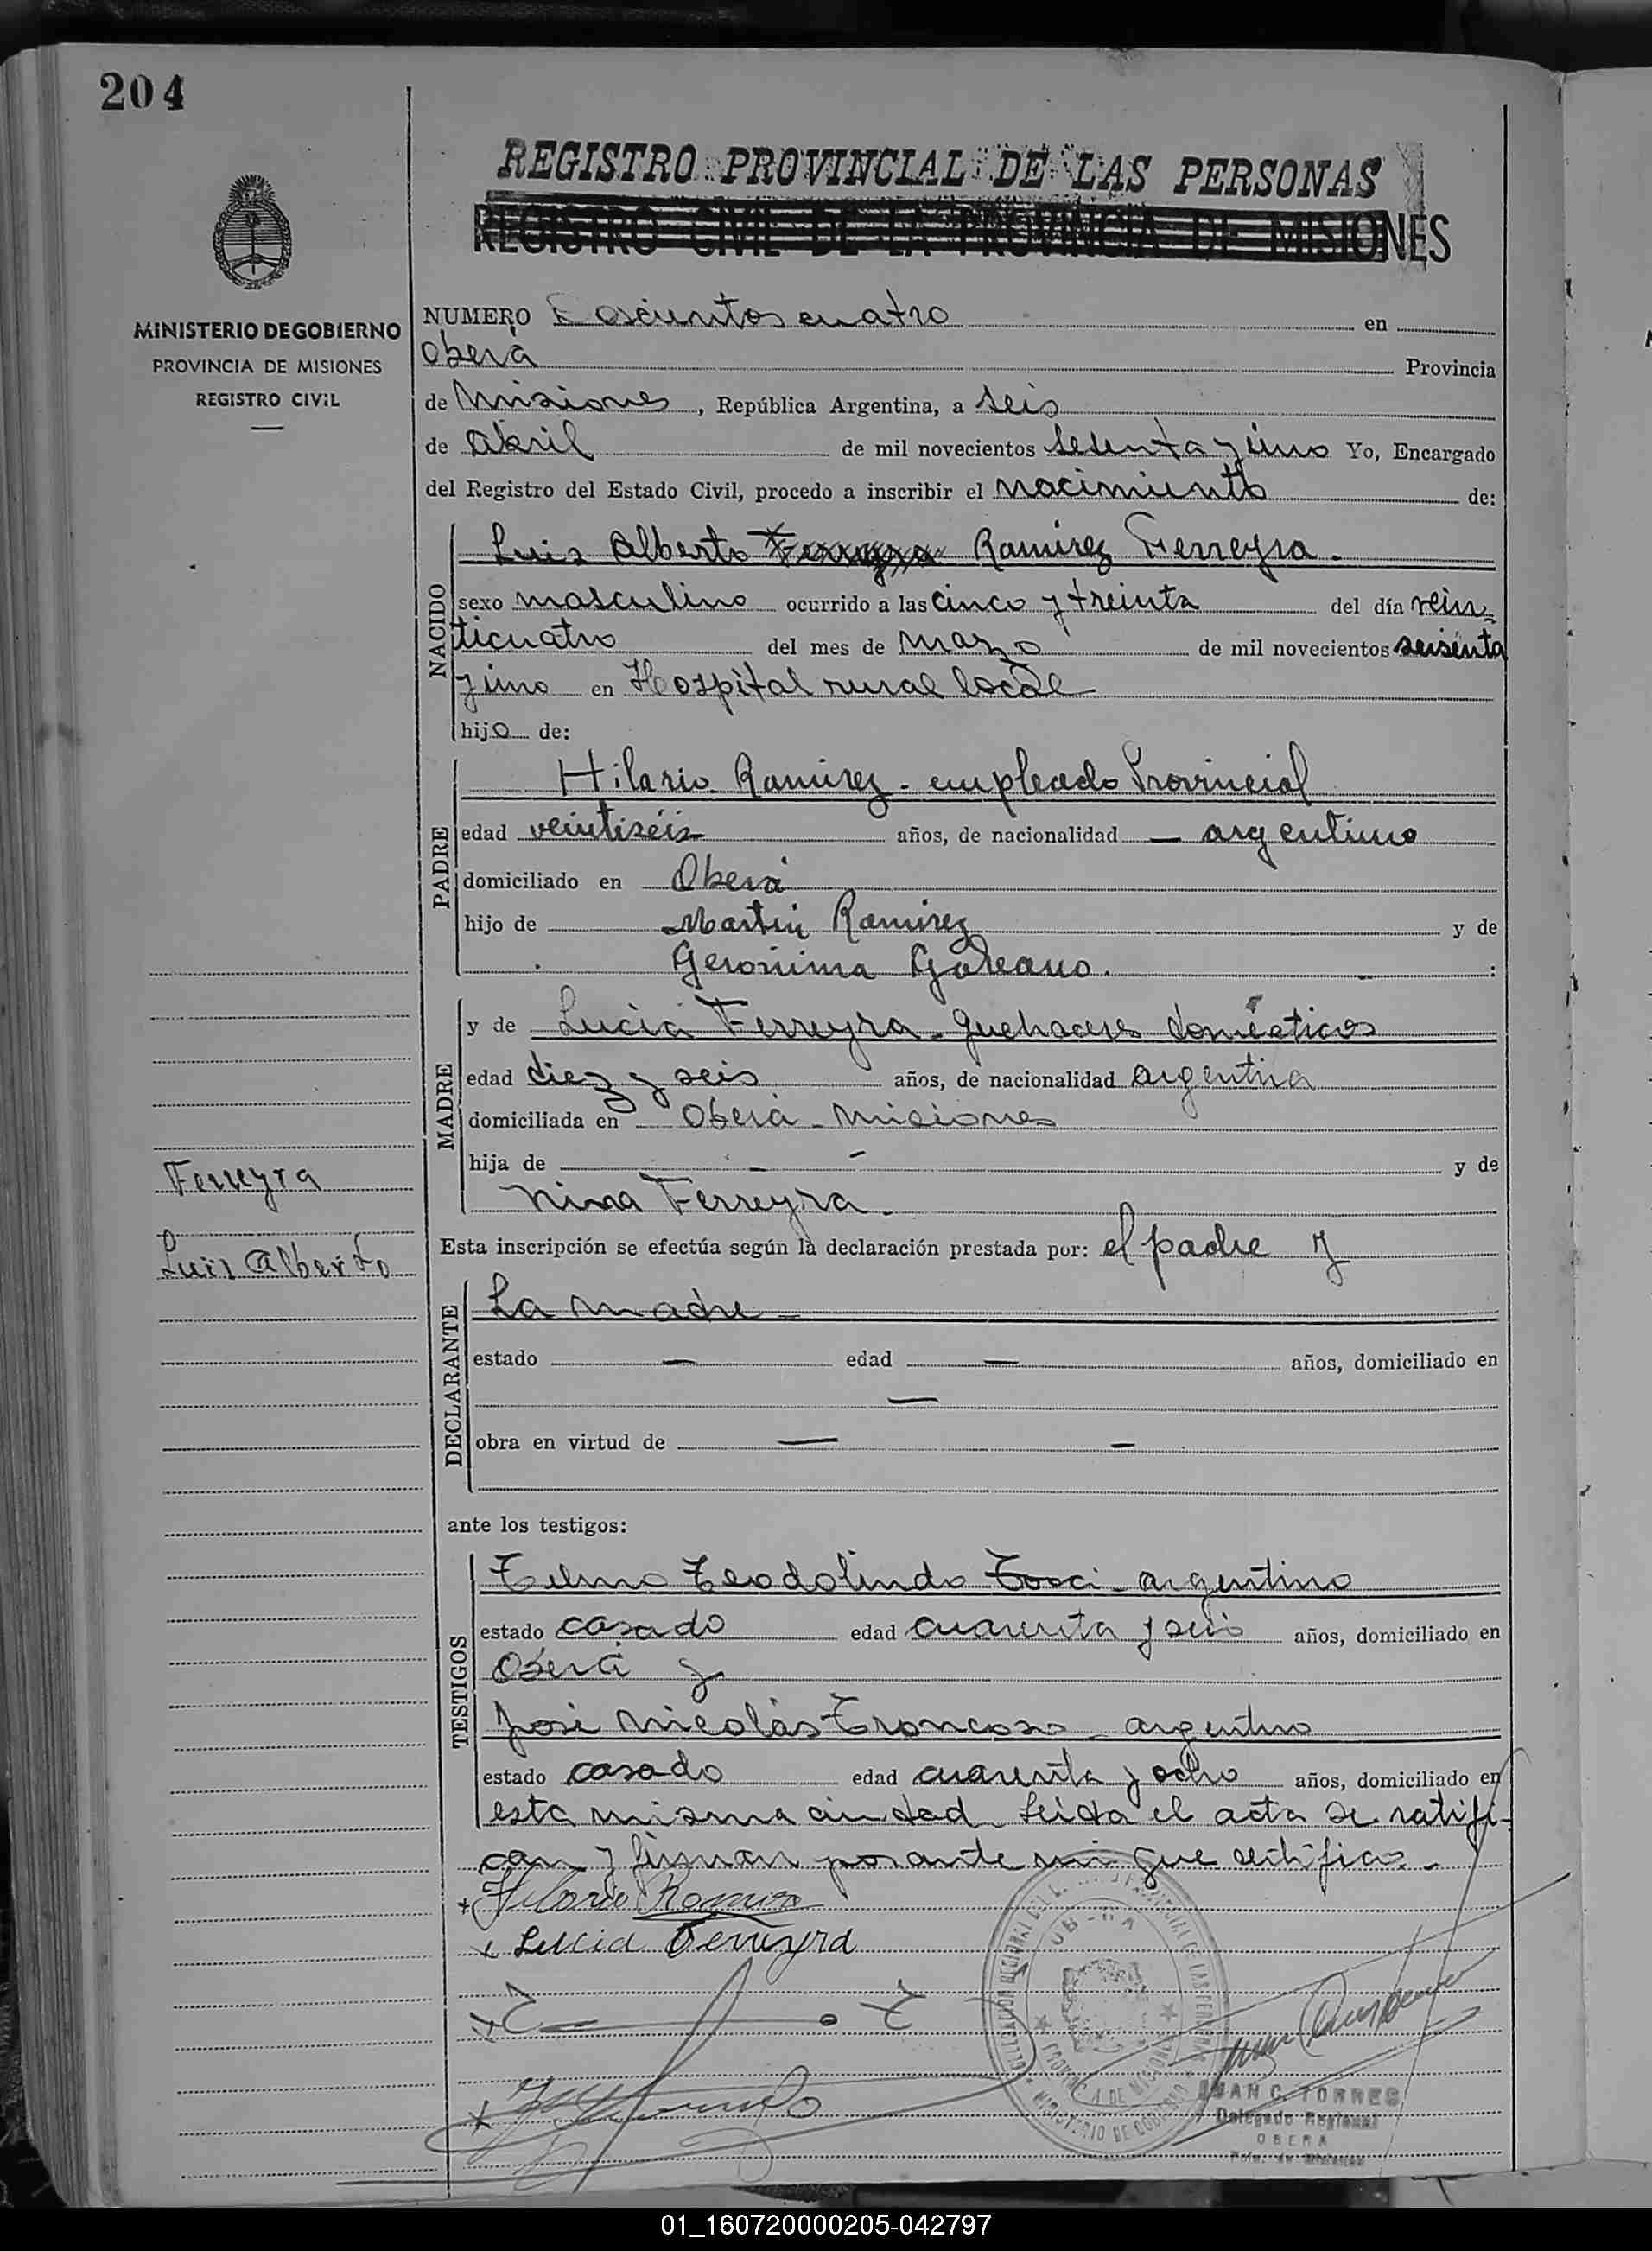 204
REGISTRO PROVINCIAL DE LAS PERSONAS
REGISTRO CIVIL DE LA PROVINCIA DE MISIONES
MINISTERIO DE GOBIERNO
PROVINCIA DE MISIONES
REGISTRO CIVIL
NUMERO Doscientos cuatro en
Oberá Provincia
de Misiones, República Argentina, a seis
de Abril de mil novecientos sesenta y uno Yo, Encargado
del Registro del Estado Civil, procedo a inscribir el nacimiento de:
NACIDO
Luis Alberto Ferreyra Ramirez Ferreyra.
sexo masculino ocurrido a las cinco y treinta del día vein
ticuatro del mes de marzo de mil novecientos seisenta
y uno en Hospital rural local
hijo de:
PADRE
Hilario Ramirez - empleado Provincial
edad veintiséis años, de nacionalidad — argentino
domiciliado en Oberá
hijo de Martin Ramirez y de
Geronima Galeano. :
MADRE
y de Lucia Ferreyra - quehaceres domésticos
edad diez y seis años, de nacionalidad argentina
domiciliada en Oberá - Misiones
hija de — — y de
Nina Ferreyra -
Ferreyra
Luis Alberto
Esta inscripción se efectúa según la declaración prestada por: el padre y
DECLARANTE
La madre -
estado — edad — años, domiciliado en
—
obra en virtud de — —
ante los testigos:
TESTIGOS
Telmo Teodolindo Tosci - argentino
estado casado edad cuarenta y seis años, domiciliado en
Oberá y
José Nicolás Troncoso - argentino
estado casado edad cuarenta y ocho años, domiciliado en
esta misma ciudad. Leida el acta se ratifi-
can y firman por ante mi que certifico. -
Hilario Ramirez
Lucia Ferreyra
OBERA
PROVINCIA DE MISIONES
MINISTERIO DE GOBIERNO
JUAN C. TORRES
Delegado Regional
OBERA
Pcia. de Misiones
01_160720000205-042797